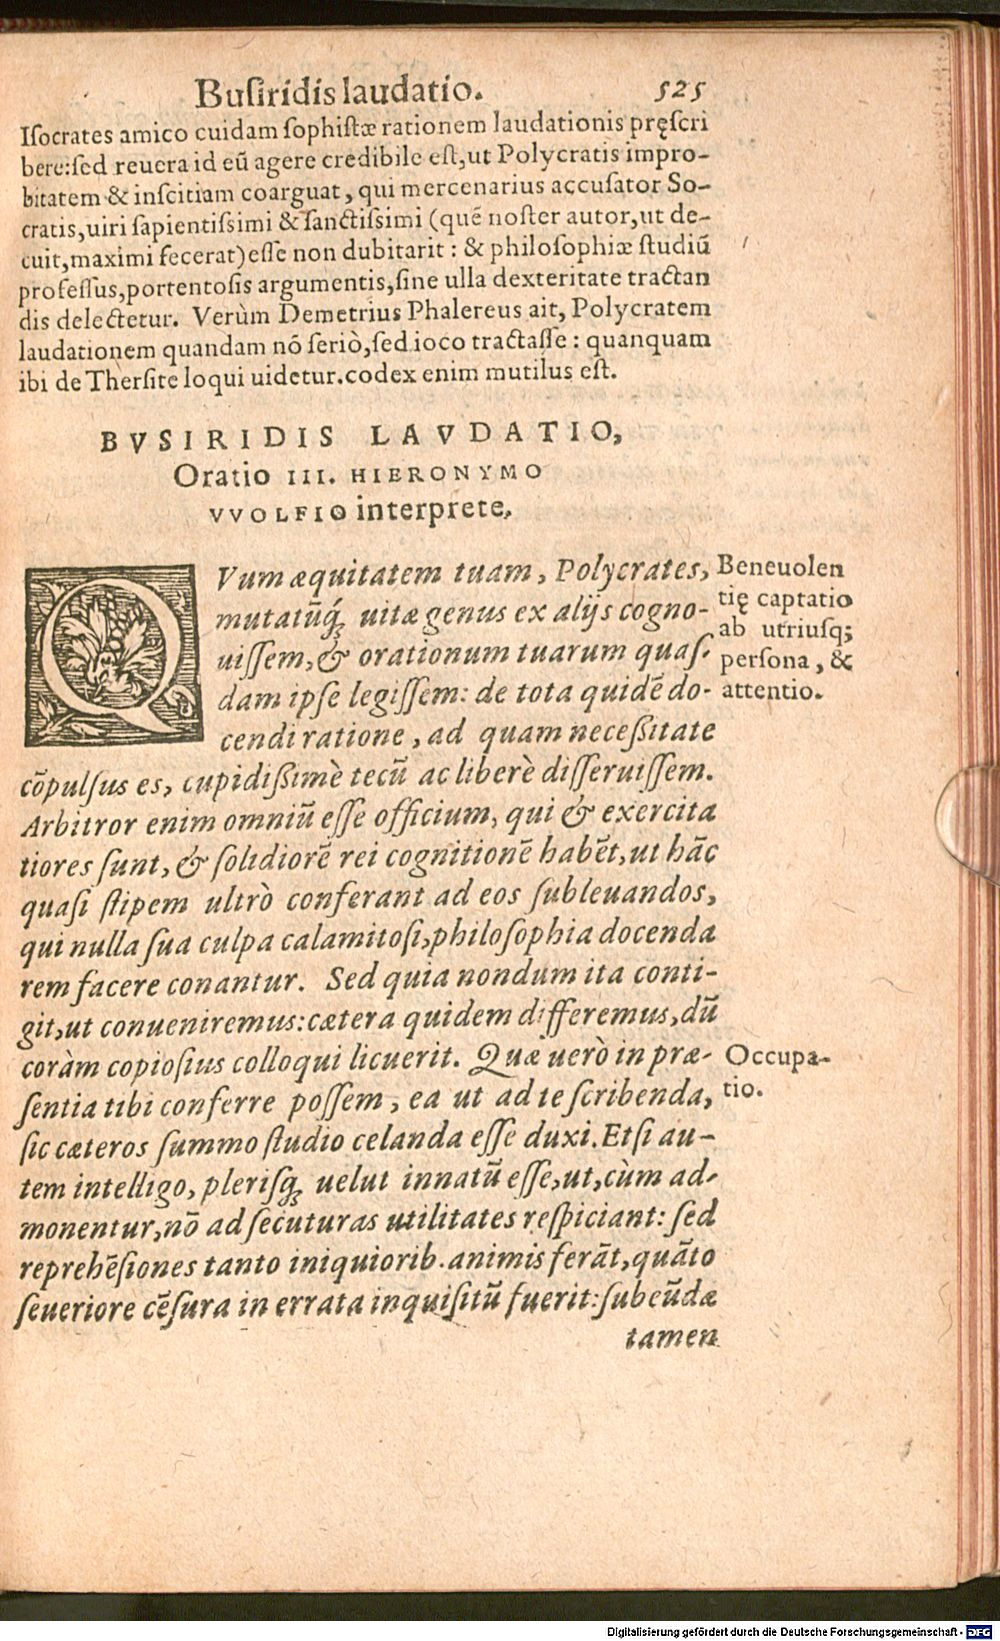 Buſiridis laudatio. 525
Iſocrates amico cuidam ſophiſtæ rationem laudationis pręſcri
bere:ſed reuera id eū agere credibile eſt,ut Polycratis impro-
bitatem & inſcitiam coarguat, qui mercenarius accuſator So-
cratis,uiri ſapientiſsimi & ſanctiſsimi (quē noſter autor,ut de-
cuit,maximi fecerat)eſſe non dubitarit : & philoſophiæ ſtudiū
profeſſus,portentoſis argumentis,ſine ulla dexteritate tractan
dis delectetur. Verùm Demetrius Phalereus ait, Polycratem
laudationem quandam nō ſeriò,ſed ioco tractaſſe : quanquam
ibi de Therſite loqui uidetur.codex enim mutilus eſt.
BVSIRIDIS LAVDATIO,
Oratio III. HIERONYMO
VVOLFIO interprete.
QVum æquitatem tuam, Polycrates,
mutatūq́ꝫ uitæ genus ex alijs cogno-
uiſſem, & orationum tuarum quaſ-
dam ipſe legiſſem: de tota quidē do-
cendi ratione, ad quam neceßitate
cōpulſus es, cupidißimè tecū ac liberè diſſeruiſſem.
Arbitror enim omniū eſſe officium, qui & exercita
tiores ſunt, & ſolidiorē rei cognitionē habēt,ut hāc
quaſi ſtipem ultrò conferant ad eos ſubleuandos,
qui nulla ſua culpa calamitoſi,philoſophia docenda
rem facere conantur. Sed quia nondum ita conti-
git,ut conueniremus:cætera quidem differemus,dū
coràm copioſius colloqui licuerit. Quæ uerò in præ-
ſentia tibi conferre poſſem, ea ut ad te ſcribenda,
ſic cæteros ſummo ſtudio celanda eſſe duxi.Etſi au-
tem intelligo, pleriſqꝫ uelut innatū eſſe,ut,cùm ad-
monentur,nō ad ſecuturas utilitates reſpiciant: ſed
reprehēſiones tanto iniquiorib.animis ferāt,quāto
ſeueriore cēſura in errata inquiſitū fuerit:ſubeūdæ
tamen
Beneuolen
tię captatio
ab utriuſq;
perſona, &
attentio.
Occupa-
tio.
Digitalisierung gefördert durch die Deutsche Forschungsgemeinschaft - DFG